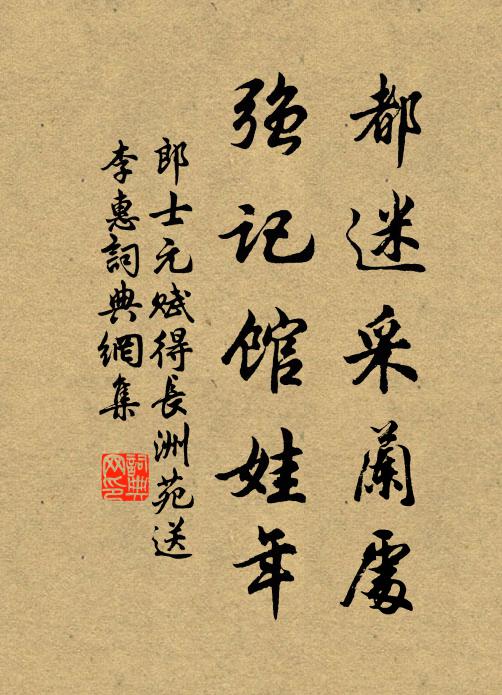 都迷采蘭處
强记馆娃年
郎士元赋得長洲苑送
李惠詞典網集
詞典网印